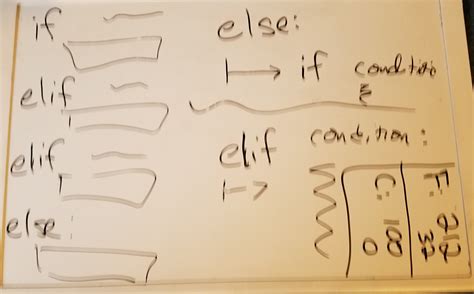 if
elif
elif
else:
else:
if
elif condition:
F: 212
32
C: 100
0